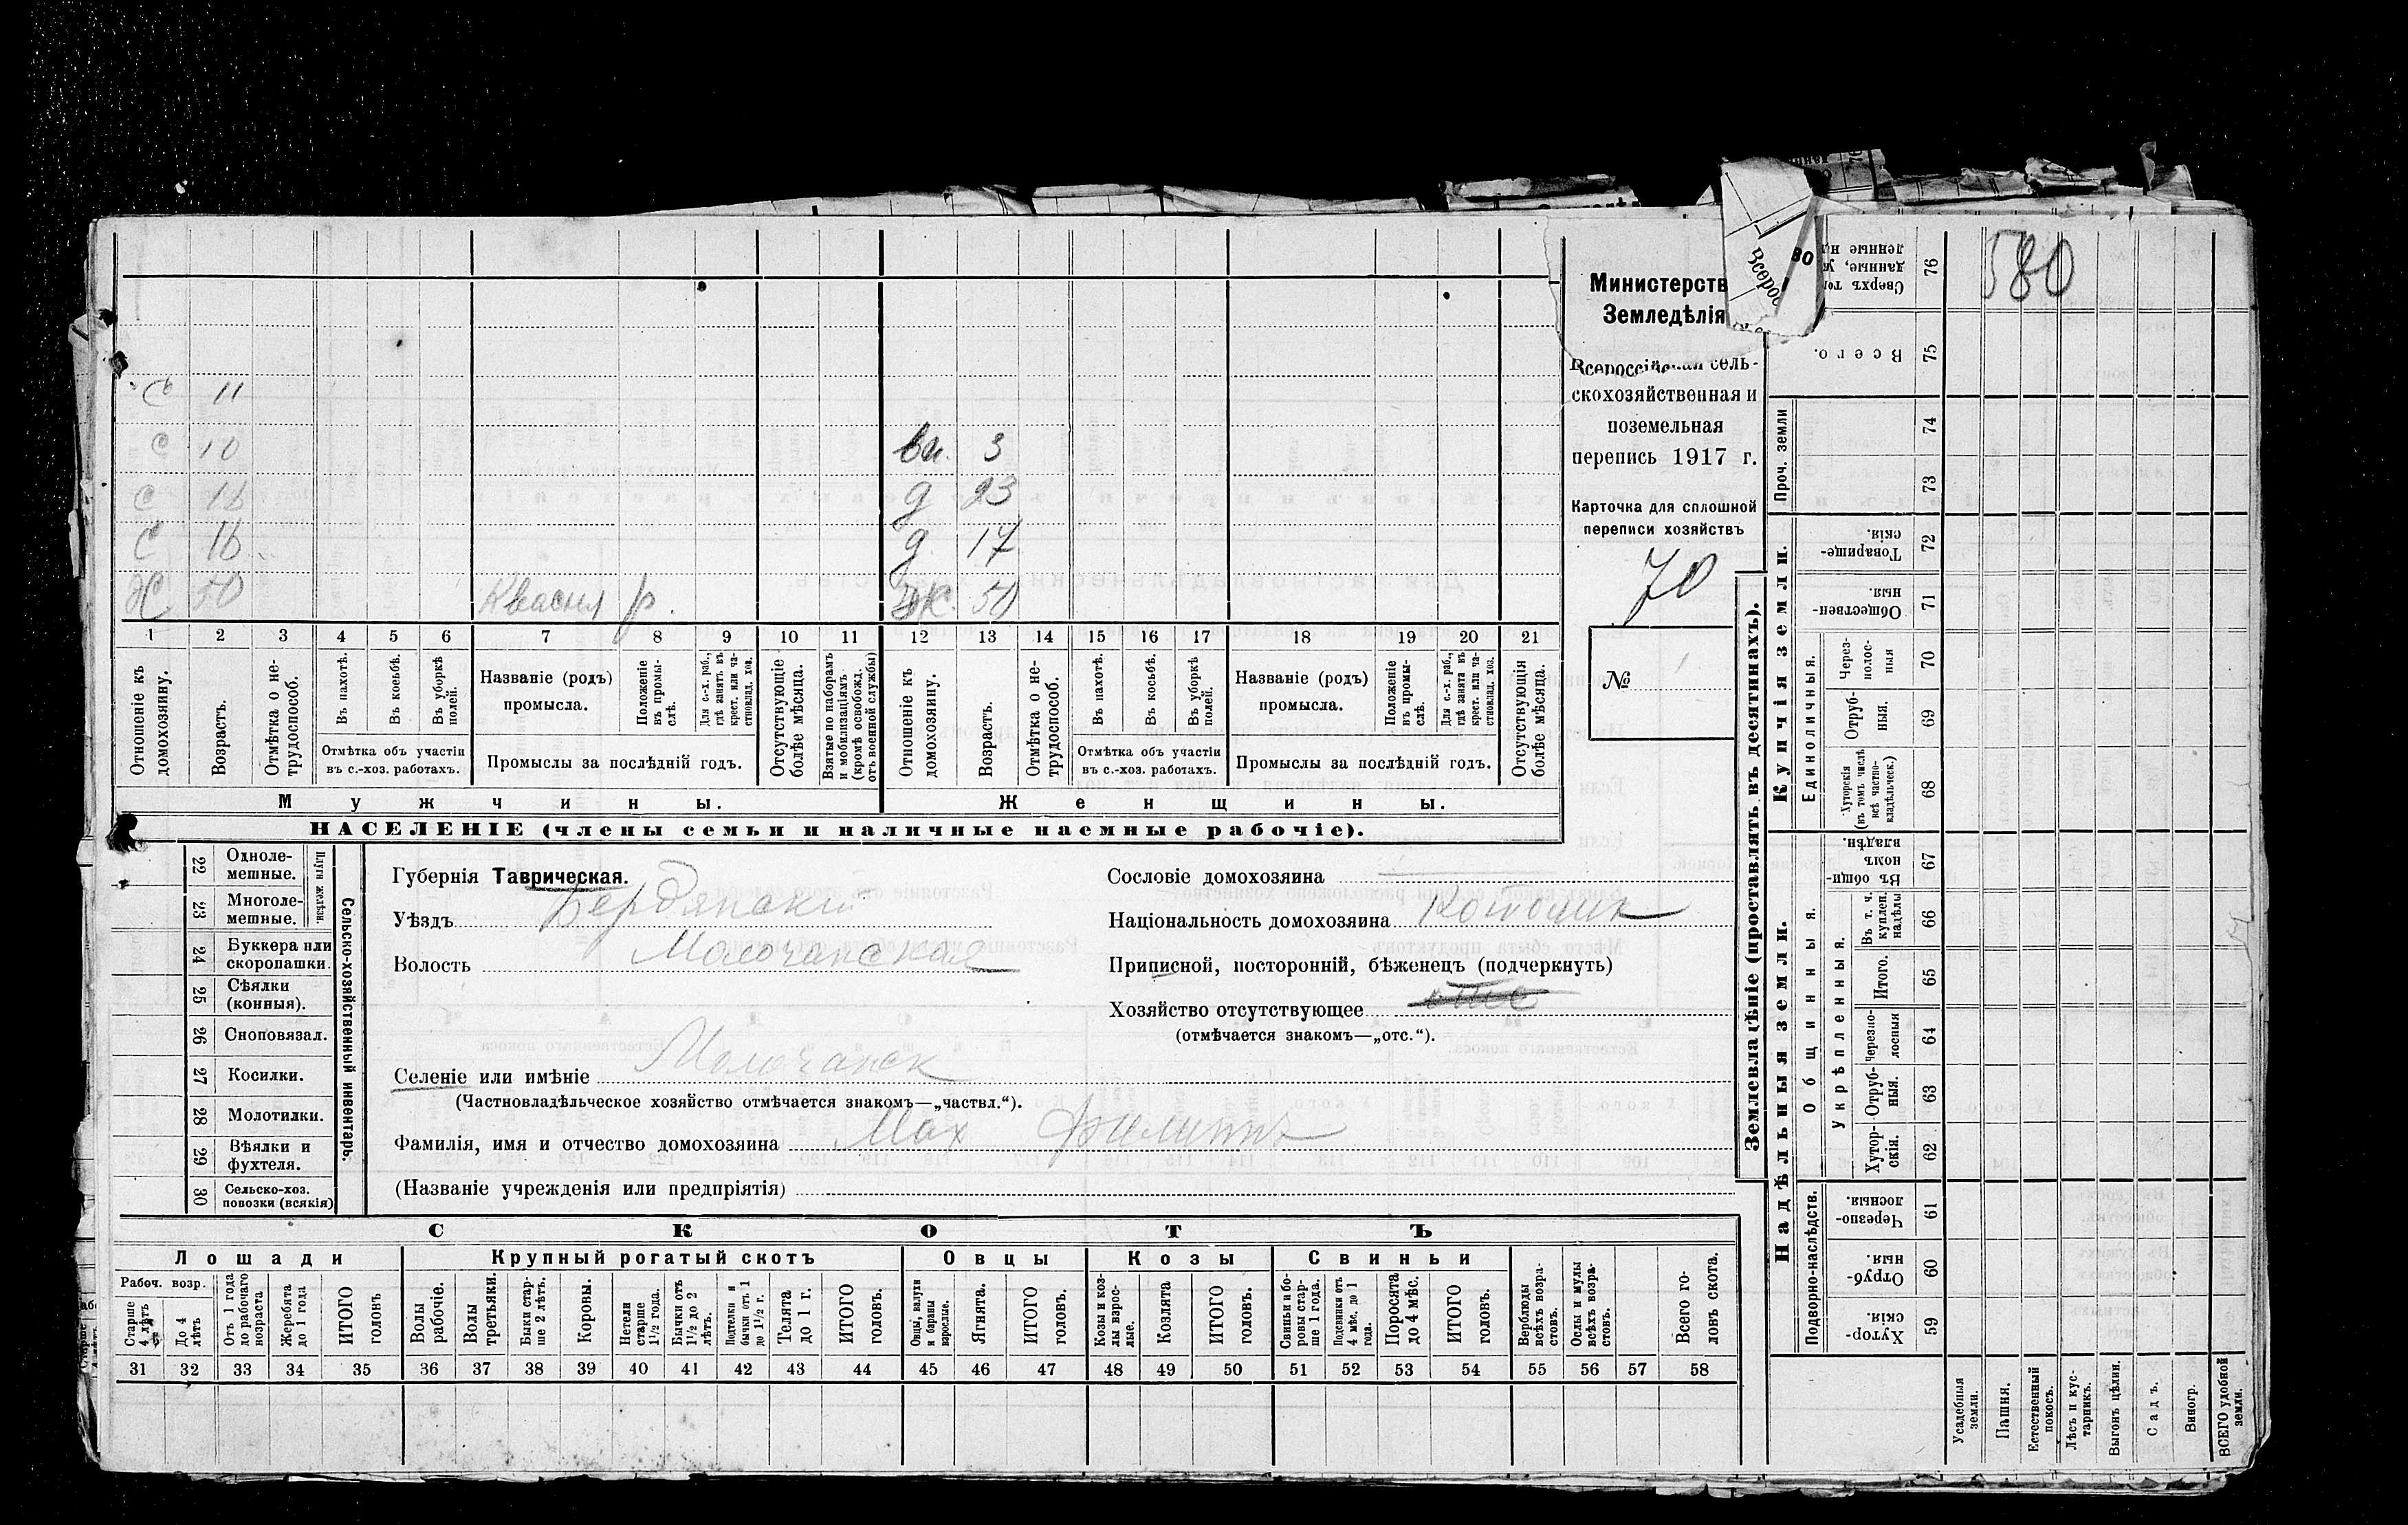 580
Министерств
Земледѣлія
Всероссійская сель-
скохозяйственная и
поземельная
перепись 1917 г.
Карточка для сплошной
переписи хозяйствъ
70
№ 1
С 11
С 10 вн. 3
С 16 д 23
С 16 д 17
Х 50 р. Ж. 50
1 2 3 4 5 6 7 8 9 10 11 12 13 14 15 16 17 18 19 20 21
Отношеніе къ домохозяину.
Возрастъ.
Отмѣтка о не-трудоспособ.
Въ пахотѣ.
Въ косьбѣ.
Въ уборкѣ полей.
Отмѣтка объ участіи
въ с.-хоз. работахъ.
Названіе (родъ)
промысла.
Положеніе въ промы-слѣ.
Для с.-х. раб., гдѣ занятъ въ крест. или ча-стновлад. хоз.
Промыслы за послѣдній годъ.
Отсутствующіе болѣе мѣсяца.
Взятые по наборамъ и мобилизаціямъ (кромѣ освобожд. отъ военной службы)
Отношеніе къ домохозяину.
Возрастъ.
Отмѣтка о не-трудоспособ.
Въ пахотѣ.
Въ косьбѣ.
Въ уборкѣ полей.
Отмѣтка объ участіи
въ с.-хоз. работахъ.
Названіе (родъ)
промысла.
Положеніе въ промы-слѣ.
Для с.-х. раб., гдѣ занята въ крест. или ча-стновлад. хоз.
Промыслы за послѣдній годъ.
Отсутствующія болѣе мѣсяца.
Мужчины. Женщины.
НАСЕЛЕНІЕ (члены семьи и наличные наемные рабочіе).
22 Одноле-мешные.
23 Многоле-мешные.
Плуги желѣзн.
24 Буккера или скоропашки.
25 Сѣялки (конныя).
26 Сноповязал.
27 Косилки.
28 Молотилки.
29 Вѣялки и фухтеля.
30 Сельско-хоз. повозки (всякія)
Сельско-хозяйственный инвентарь.
Губернія Таврическая.
Уѣздъ Бердянскій
Волость Молочанская
Селеніе или имѣніе Молочанск
(Частновладѣльческое хозяйство отмѣчается знакомъ—„частвл.“).
Фамилія, имя и отчество домохозяина Мах Филиппъ
(Названіе учрежденія или предпріятія)
Сословіе домохозяина
Національность домохозяина
Приписной, посторонній, бѣженецъ (подчеркнуть)
Хозяйство отсутствующее
(отмѣчается знакомъ—„отс.“).
СКОТЪ
Лошади Крупный рогатый скотъ Овцы Козы Свиньи
Рабоч. возр.
Старше 4 лѣтъ
До 4 лѣтъ
Отъ 1 года до рабочаго возраста
Жеребята до 1 года
ИТОГО головъ
Волы рабочіе.
Волы третьяки.
Быки стар-ше 2 лѣтъ.
Коровы.
Нетели старше 1½ года.
Бычки отъ 1½ до 2 лѣтъ.
Подтелки и бычки отъ 1 до 1½ г.
Телята до 1 г.
ИТОГО головъ.
Овцы, валухи и бараны взрослые.
Ягнята.
ИТОГО головъ.
Козы и коз-лы взрос-лые.
Козлята
ИТОГО головъ.
Свиньи и бо-ровы стар-ше 1 года.
Подсвинки отъ 4 мѣс. до 1 года.
Поросята до 4 мѣс.
ИТОГО головъ.
Верблюды всѣхъ возра-стовъ.
Ослы и мулы всѣхъ возра-стовъ.
Всего го-ловъ скота.
31 32 33 34 35 36 37 38 39 40 41 42 43 44 45 46 47 48 49 50 51 52 53 54 55 56 57 58
Землевладѣніе (проставлять въ десятинахъ).
Надѣльныя земли. Купчія земли.
Подворно-наслѣдств.
Общинныя.
Укрѣпленныя.
Единоличныя.
Проч. земли
Хутор-скія. 59
Отруб-ныя. 60
Черезпо-лосныя. 61
Хутор-скія. 62
Отруб-ныя. 63
Черезпо-лосныя 64
Итого. 65
Въ т. ч. куплен. надѣлы 66
Въ общи-номъ владѣн. 67
Хуторскія (въ томъ числѣ всѣ частно-владѣльческ.) 68
Отруб-ныя. 69
Через-полос-ныя 70
Обществен-ныя. 71
Товарище-скія. 72
73
74
Всего. 75
76
Усадебныя земли.
Пашня.
Естественный покосъ.
Лѣсъ и кус-тарникъ.
Выгонъ цѣлин.
Садъ.
Виногр.
ВСЕГО удобной земли.